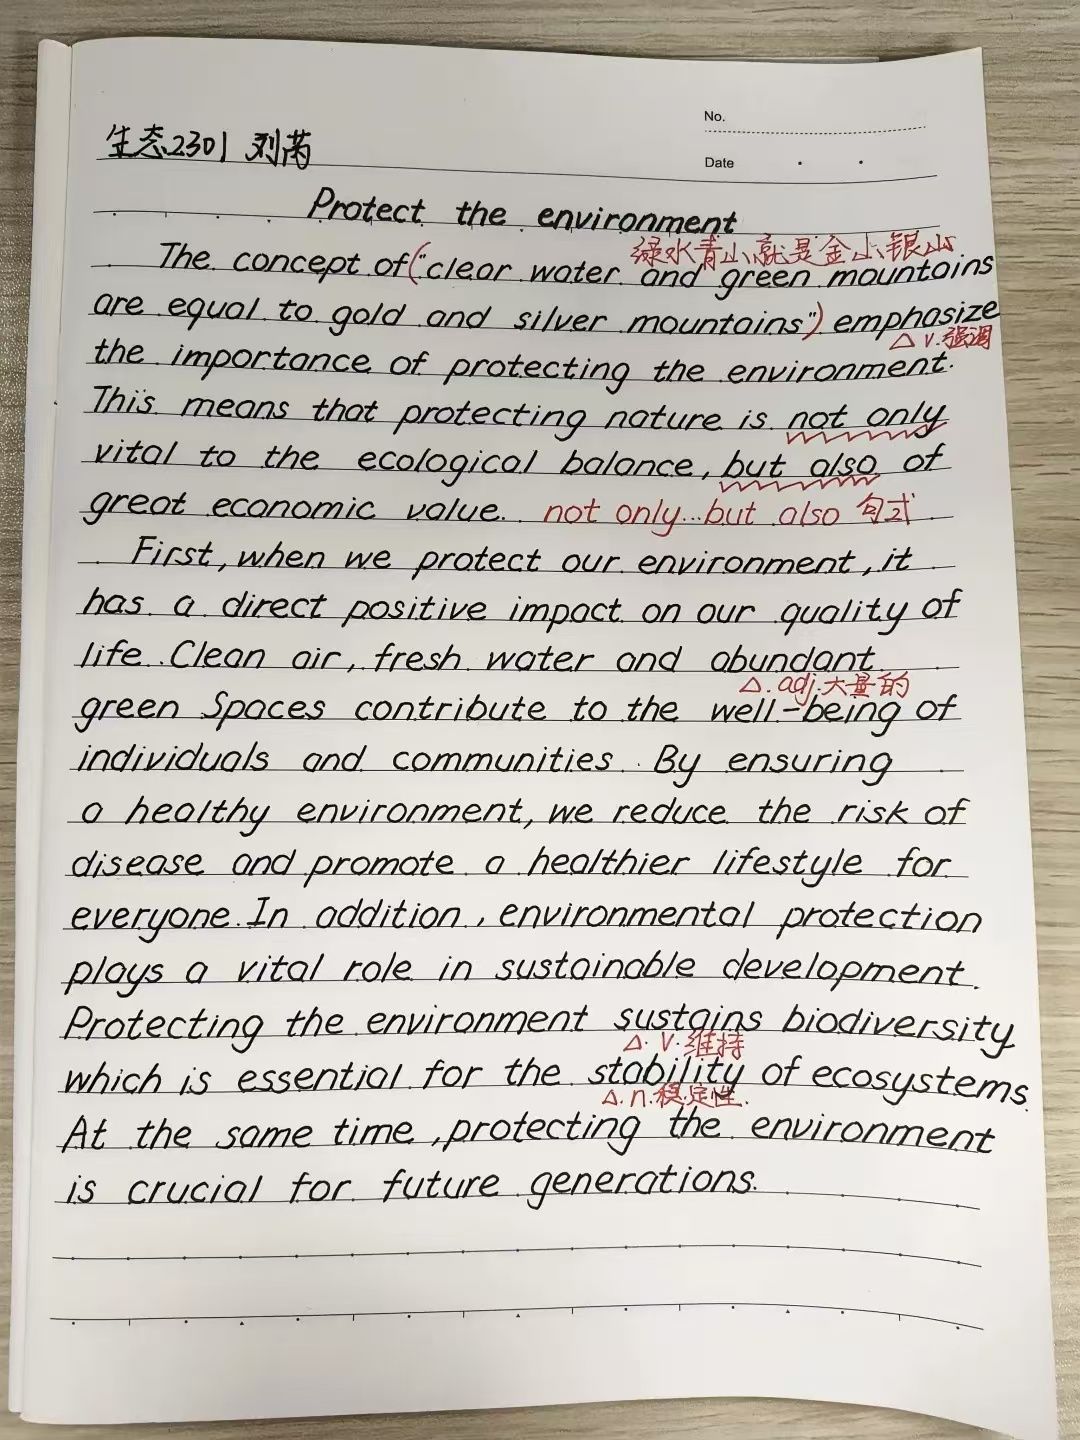 No.
Date
生态2301 刘芮
Protect the environment
绿水青山就是金山银山
The concept of ("clear water and green mountains
are equal to gold and silver mountains") emphasize
△ v.强调
the importance of protecting the environment.
This means that protecting nature is not only
vital to the ecological balance, but also of
great economic value. not only...but also 句式
First, when we protect our environment, it
has a direct positive impact on our quality of
life. Clean air, fresh water and abundant
△. adj.大量的
green Spaces contribute to the well-being of
individuals and communities. By ensuring
a healthy environment, we reduce the risk of
disease and promote a healthier lifestyle for
everyone. In addition, environmental protection
plays a vital role in sustainable development.
Protecting the environment sustains biodiversity
△. v.维持
which is essential for the stability of ecosystems.
△. n.稳定性.
At the same time, protecting the environment
is crucial for future generations.